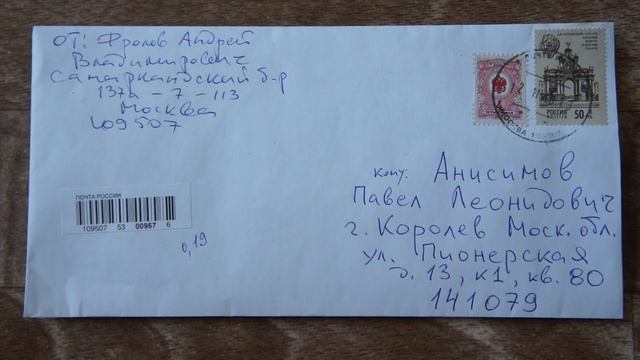 от: Фролов Андрей
Владимирович
Самаркандский б-р
137а - 7 - 113
Москва
109507
РОССИЯ
50
МОСКВА
кому: Анисимов
Павел Леонидович
г. Королев Моск. обл.
ул. Пионерская
д. 13, к1, кв. 80
141079
ПОЧТА РОССИИ
109507 53 00967 6
0,19